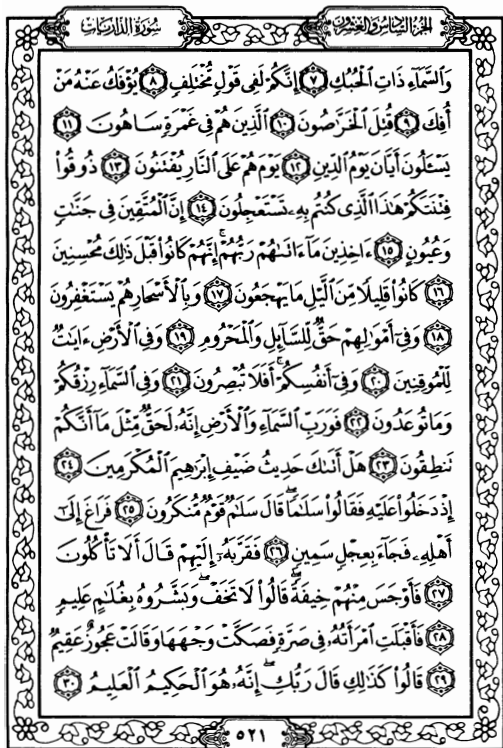 سُورَةُ الذَّارِيَاتِ الجُزءُ السَّادِسُ وَالعِشرُونَ
وَٱلسَّمَآءِ ذَاتِ ٱلۡحُبُكِ ٧ إِنَّكُمۡ لَفِي قَوۡلٖ مُّخۡتَلِفٖ ٨ يُؤۡفَكُ عَنۡهُ مَنۡ
أُفِكَ ٩ قُتِلَ ٱلۡخَرَّٰصُونَ ١٠ ٱلَّذِينَ هُمۡ فِي غَمۡرَةٖ سَاهُونَ ١١
يَسۡـَٔلُونَ أَيَّانَ يَوۡمُ ٱلدِّينِ ١٢ يَوۡمَ هُمۡ عَلَى ٱلنَّارِ يُفۡتَنُونَ ١٣ ذُوقُواْ
فِتۡنَتَكُمۡ هَٰذَا ٱلَّذِي كُنتُم بِهِۦ تَسۡتَعۡجِلُونَ ١٤ إِنَّ ٱلۡمُتَّقِينَ فِي جَنَّٰتٖ
وَعُيُونٍ ١٥ ءَاخِذِينَ مَآ ءَاتَىٰهُمۡ رَبُّهُمۡۚ إِنَّهُمۡ كَانُواْ قَبۡلَ ذَٰلِكَ مُحۡسِنِينَ
١٦ كَانُواْ قَلِيلٗا مِّنَ ٱلَّيۡلِ مَا يَهۡجَعُونَ ١٧ وَبِٱلۡأَسۡحَارِ هُمۡ يَسۡتَغۡفِرُونَ
١٨ وَفِيٓ أَمۡوَٰلِهِمۡ حَقّٞ لِّلسَّآئِلِ وَٱلۡمَحۡرُومِ ١٩ وَفِي ٱلۡأَرۡضِ ءَايَٰتٞ
لِّلۡمُوقِنِينَ ٢٠ وَفِيٓ أَنفُسِكُمۡۚ أَفَلَا تُبۡصِرُونَ ٢١ وَفِي ٱلسَّمَآءِ رِزۡقُكُمۡ
وَمَا تُوعَدُونَ ٢٢ فَوَرَبِّ ٱلسَّمَآءِ وَٱلۡأَرۡضِ إِنَّهُۥ لَحَقّٞ مِّثۡلَ مَآ أَنَّكُمۡ
تَنطِقُونَ ٢٣ هَلۡ أَتَىٰكَ حَدِيثُ ضَيۡفِ إِبۡرَٰهِيمَ ٱلۡمُكۡرَمِينَ ٢٤
إِذۡ دَخَلُواْ عَلَيۡهِ فَقَالُواْ سَلَٰمٗاۖ قَالَ سَلَٰمٞ قَوۡمٞ مُّنكَرُونَ ٢٥ فَرَاغَ إِلَىٰٓ
أَهۡلِهِۦ فَجَآءَ بِعِجۡلٖ سَمِينٖ ٢٦ فَقَرَّبَهُۥٓ إِلَيۡهِمۡ قَالَ أَلَا تَأۡكُلُونَ
٢٧ فَأَوۡجَسَ مِنۡهُمۡ خِيفَةٗۖ قَالُواْ لَا تَخَفۡۖ وَبَشَّرُوهُ بِغُلَٰمٍ عَلِيمٖ
٢٨ فَأَقۡبَلَتِ ٱمۡرَأَتُهُۥ فِي صَرَّةٖ فَصَكَّتۡ وَجۡهَهَا وَقَالَتۡ عَجُوزٌ عَقِيمٞ
٢٩ قَالُواْ كَذَٰلِكِ قَالَ رَبُّكِۖ إِنَّهُۥ هُوَ ٱلۡحَكِيمُ ٱلۡعَلِيمُ ٣٠
٥٢١